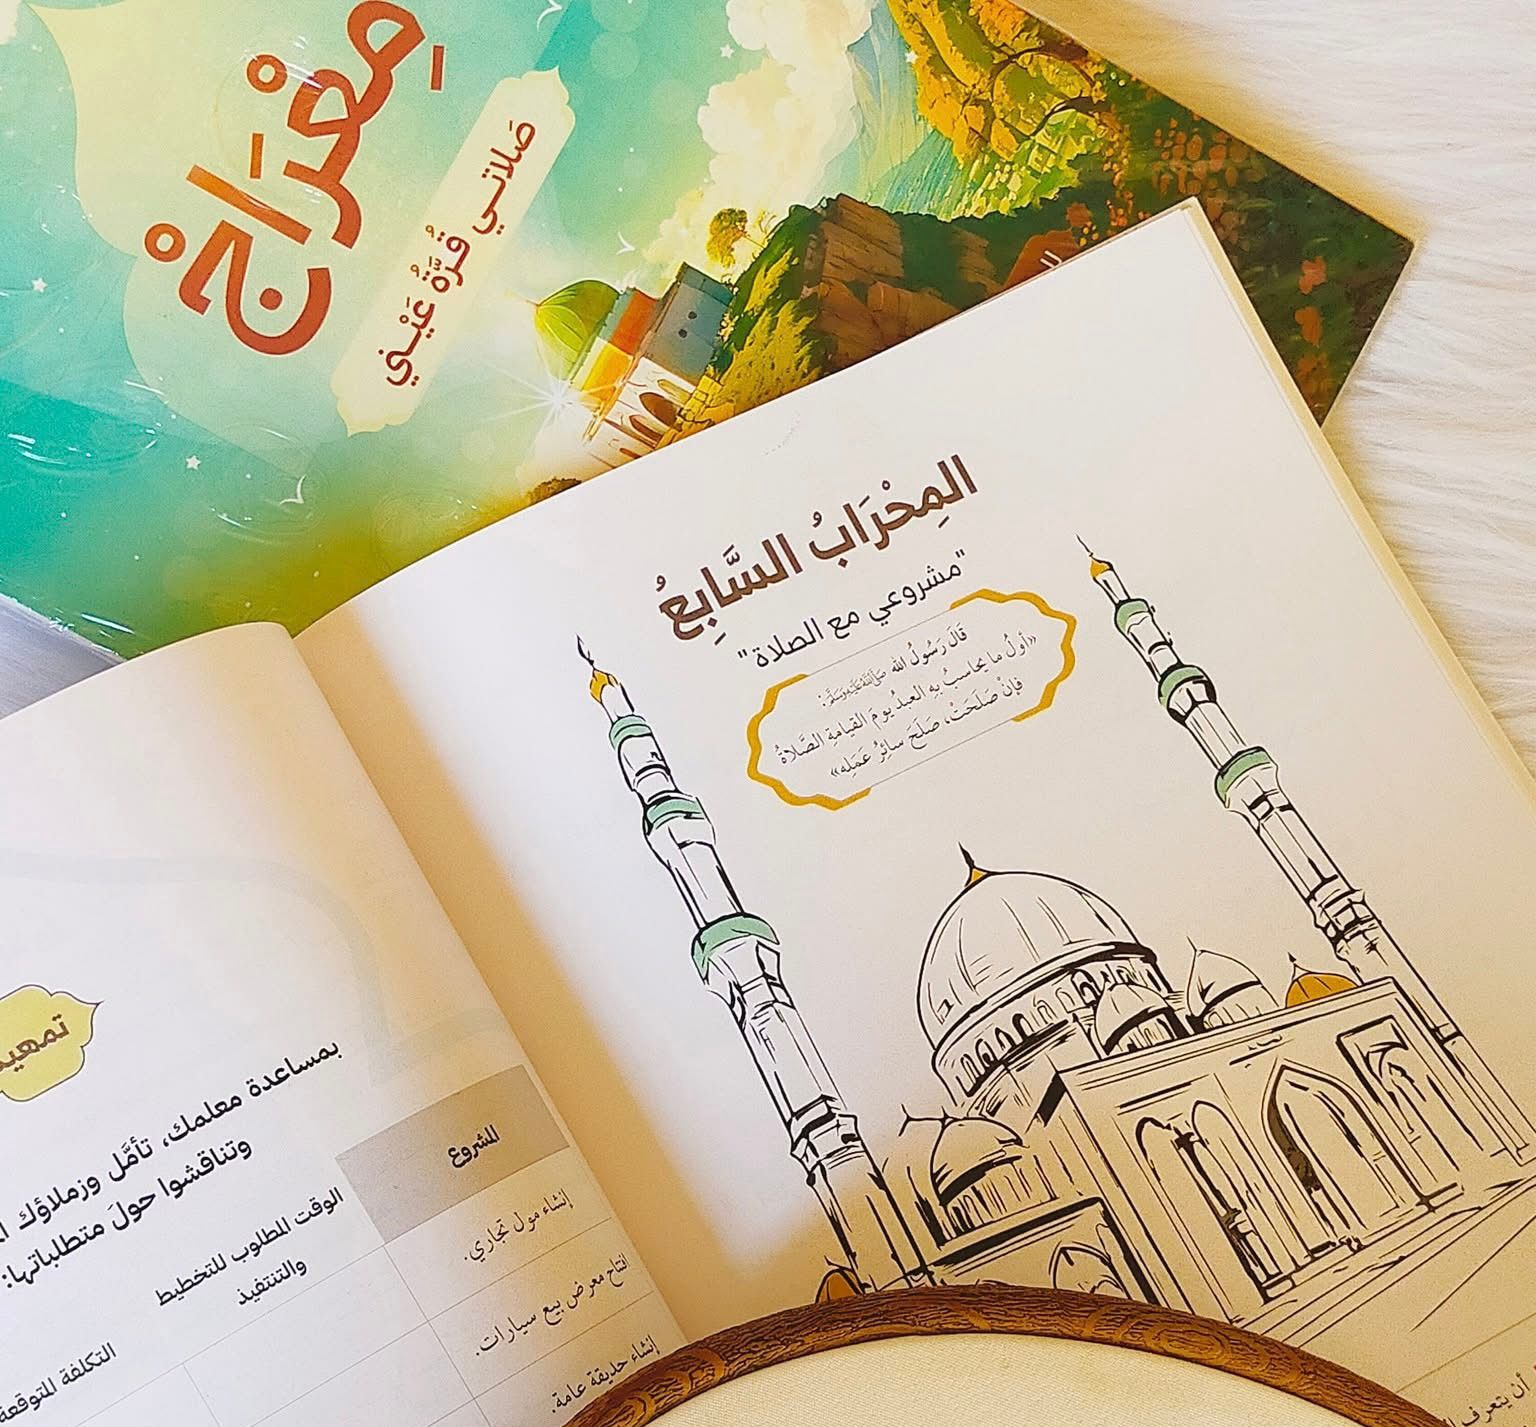 مِعْرَاجْ
صَلاتي قُرَّةُ عَيْني
المِحْرَابُ السَّابِعُ
"مشروعي مع الصلاة"
قَالَ رَسُولُ الله ﷺ:
«أولُ ما يحاسبُ بِهِ العبدُ يومَ القيامةِ الصَّلاةُ
فإنْ صَلَحَتْ، صَلَحَ سائِرُ عَمَلِه»
بمساعدة معلمك، تأمَّل وزملاؤك
وتناقشوا حولَ متطلباتها:
المشروع
الوقت المطلوب للتخطيط
والتنتفيذ
التكلفة المتوقعة
إنشاء مول تجاري.
افتتاح معرض بيع سيارات.
إنشاء حديقة عامة.
أن يتعرف